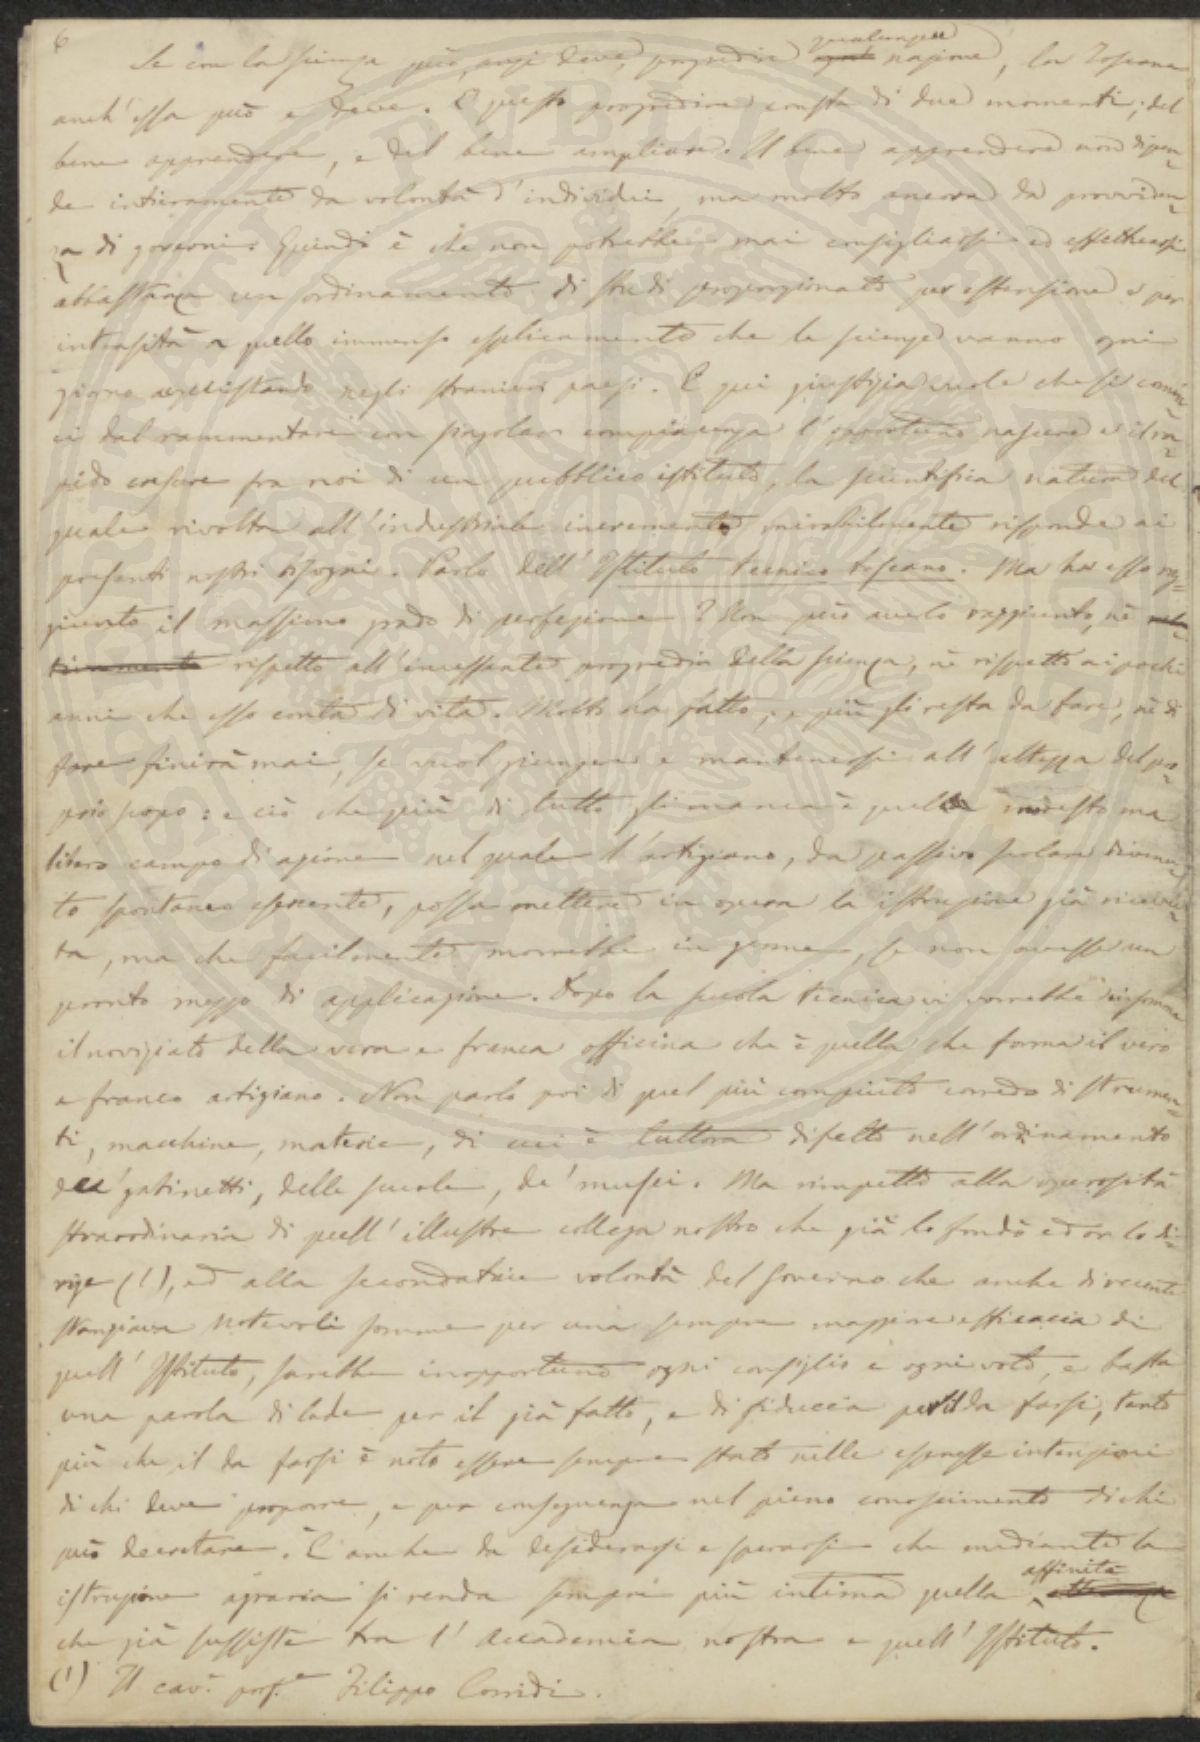 6
Se con la scienza può, anzi deve, progredire qualunque nazione, la Toscana
anch'essa può e deve. E questo progredire consta di due momenti; del
bene apprendere, e del bene ampliare. Il bene apprendere non dipen-
de intieramente da volontà d'individui, ma molto ancora da provviden-
za di governi. Quindi è che non potrebbe mai consigliarsi ed effettuarsi
abbastanza un ordinamento di studi proporzionato per estensione e per
intensità a quello immenso esplicamento che le scienze vanno ogni
giorno acquistando negli stranieri paesi. E qui giustizia vuole che si comin-
ci dal rammentare con singolare compiacenza l'opportuno nascere e il ra-
pido crescere fra noi di un pubblico istituto, la scientifica natura del
quale rivolta all'industriale incremento mirabilmente risponde ai
presenti nostri bisogni. Parlo dell'Istituto tecnico toscano. Ma ha esso rag-
giunto il massimo grado di perfezione? Non può averlo raggiunto, nè
rispetto all'incessante progredir della scienza, nè rispetto ai pochi
anni che esso conta di vita. Molto ha fatto, e più gli resta da fare, nè di
fare finirà mai, se vuol giungere e mantenersi all'altezza del pro-
prio scopo: e ciò che più di tutto gli manca è quel modesto ma
libero campo di azione nel quale l'artigiano, da passivo scolare divenu-
to spontaneo esercente, possa mettere in opera la istruzione già ricevu-
ta, ma che facilmente morrebbe in germe, se non avesse un
pronto mezzo di applicazione. Dopo la scuola tecnica vi vorrebbe insomma
il noviziato della vera e franca officina che è quella che forma il vero
e franco artigiano. Non parlo poi di quel più compiuto corredo di strumen-
ti, macchine, materie, di cui è tuttora difetto nell'ordinamento
de' gabinetti, delle scuole, de' musei. Ma rimpetto alla operosità
straordinaria di quell'illustre collega nostro che già lo fondò ed or lo di-
rige (1), ed alla secondatrice volontà del Governo che anche di recente
stanziava notevoli somme per una sempre maggiore efficacia di
quell'Istituto, sarebbe inopportuno ogni consiglio e ogni voto, e basta
una parola di lode per il già fatto, e di fiducia pel da farsi, tanto
più che il da farsi è noto essere sempre stato nelle espresse intenzioni
di chi deve proporre, e per conseguenza nel pieno conoscimento di chi
può decretare. È anche da desiderarsi e sperarsi che mediante la
istruzione agraria si renda sempre più intima quella affinità
che già sussiste tra l'Accademia nostra e quell'Istituto.
(1) Il cav. prof.e Filippo Corridi.